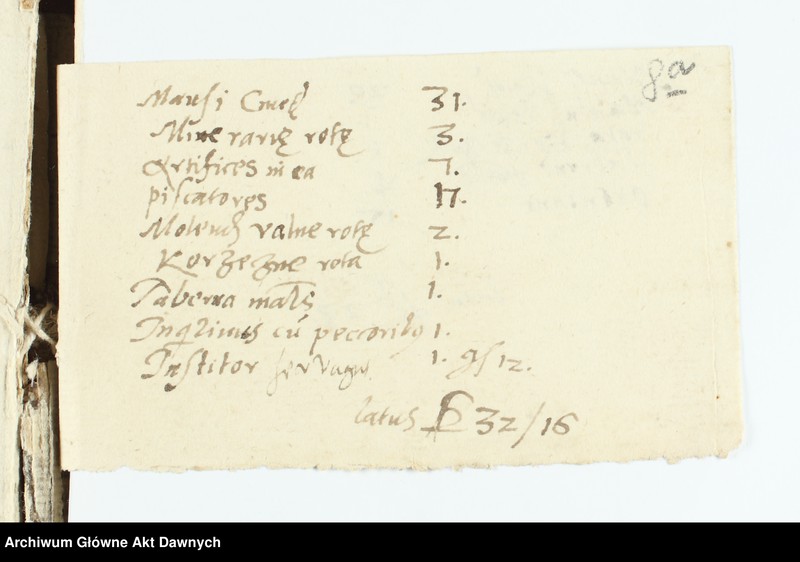 8a
Mansi Cmetł 31.
Minerarię rotę 3.
Artifices in ea 7.
piscatores 17.
Molend valne rotę 2.
Korzezne rota 1.
Taberna 1.
Inqilinus cū peccorib9 1.
Institor 1. gſ 12.
latus 32/16
Archiwum Główne Akt Dawnych